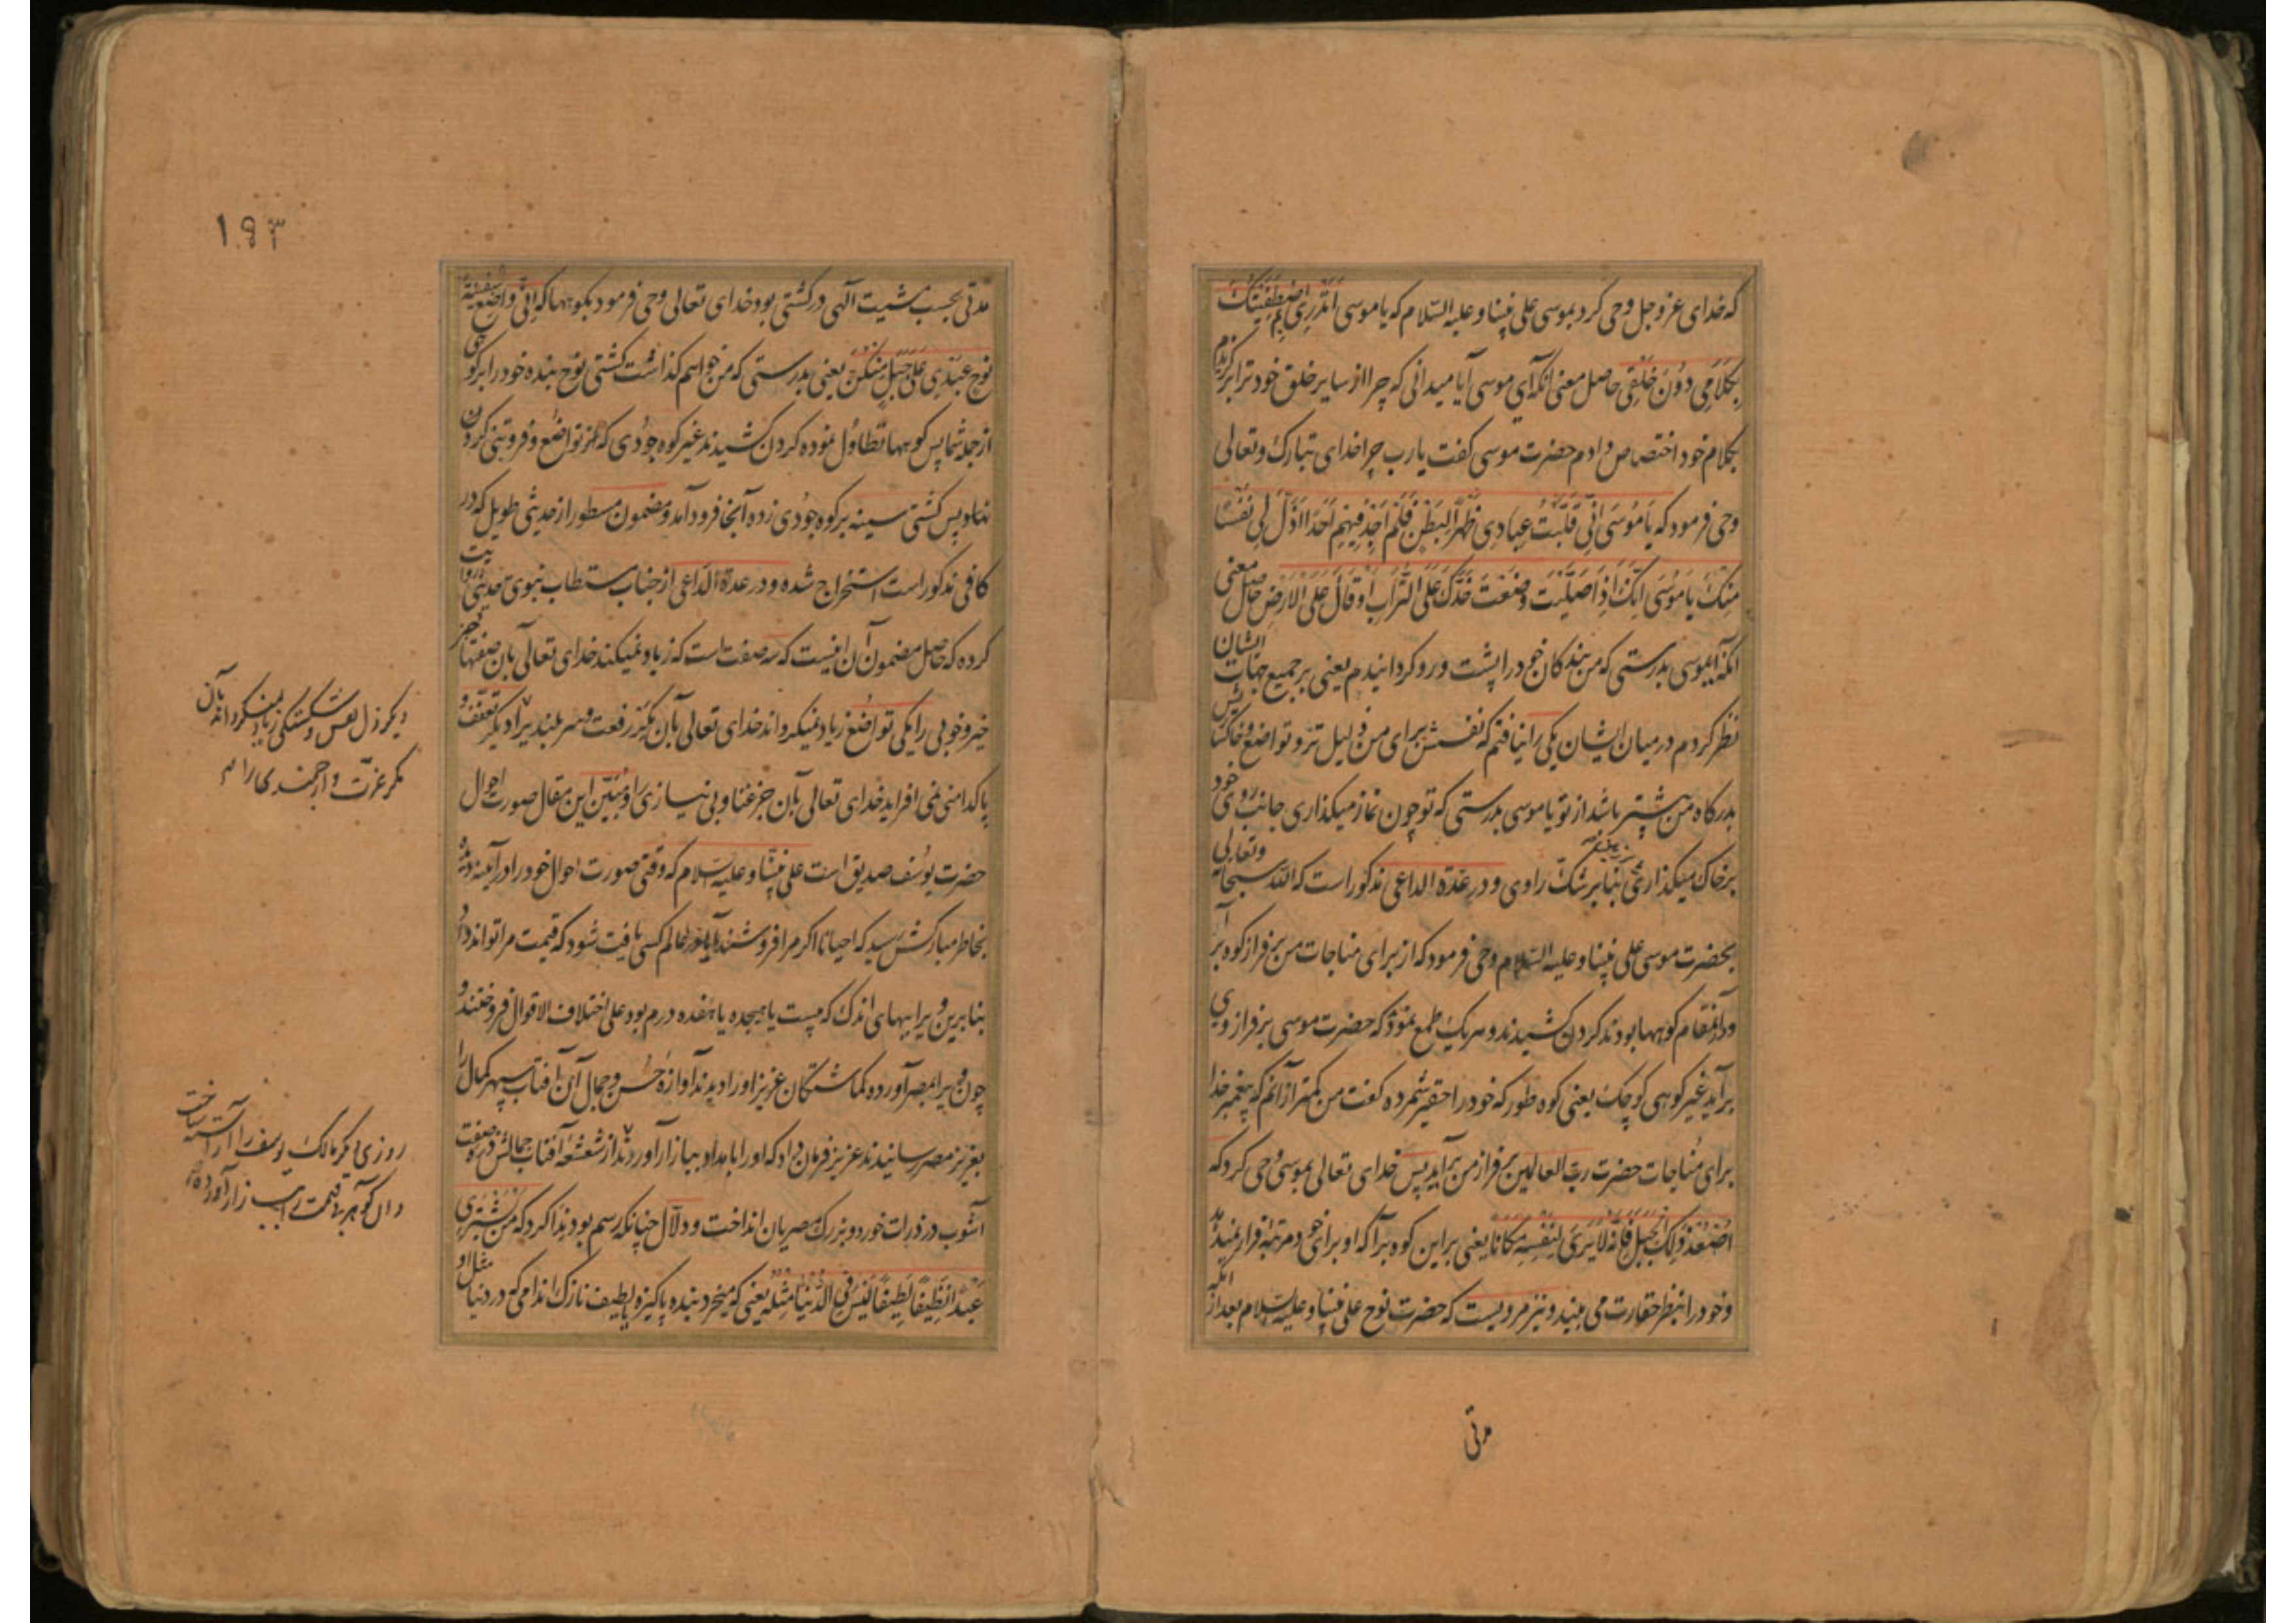 که خدای عز و جل وحی کرد بموسی علی نبینا و علیه السلام که یا موسی اتدری لم اصطفیتک
بکلامی دون خلقی حاصل معنی آنکه ای موسی آیا میدانی که چرا از سایر خلق خود ترا برگزیدم
بکلام خود اختصاص دادم حضرت موسی گفت یا رب چرا خدای تبارک و تعالی
وحی فرمود که یا موسی انی قلبت عبادی ظهرا لبطن فلم اجد فیهم احدا اذل لی نفسا
منک یا موسی انک اذا صلیت وضعت خدک علی التراب او قال علی الارض حاصل معنی
آنکه ای موسی بدرستی که من بندگان خود را پشت و رو گردانیدم یعنی بر جمیع جهات ایشان
نظر کردم در میان ایشان یکی را نیافتم که نفسش برای من ذلیل تر و تواضع و خاکساریش
بدرگاه من بیشتر باشد از تو یا موسی بدرستی که تو چون نماز میگذاری جانب روی خود
بر خاک میگذاری بنابر شک راوی و در عدة الداعی مذکور است که الله سبحانه و تعالی
بحضرت موسی علی نبینا و علیه السلام وحی فرمود که از برای مناجات من بر فراز کوه برآ
و در آنمقام کوهها بودند گردن کشیدند و هر یک طمع نمود که حضرت موسی بر فراز وی
برآید غیر کوهی کوچک یعنی کوه طور که خود را حقیر شمرده گفت من کمتر از آنم که پیغمبر خدا
برای مناجات حضرت رب العالمین بر فراز من برآید پس خدای تعالی بموسی وحی کرد که
اصعد ذلک الجبل فانه لا یری لنفسه مکانا یعنی بر این کوه برآ که او برای خود مرتبه قرار نمیدهد
و خود را بنظر حقارت می بیند و نیز مرویست که حضرت نوح علی نبینا و علیه السلام بعد از آنکه
مدتی
۱۹۳
مدتی بحسب مشیت الهی در کشتی بود خدای تعالی وحی فرمود بکوهها که انی واضع سفینة
نوح عبدی علی جبل منکن یعنی بدرستی که من خواهم گذاشت کشتی نوح بنده خود را بر کوهی
از جمله شما پس کوهها تطاول نموده گردن کشیدند غیر کوه جودی که از تواضع و فروتنی گردن
ننهاد پس کشتی سینه بر کوه جودی زده آنجا فرود آمد و مضمون مسطور از حدیثی طویل که در
کافی مذکور است استخراج شده و در عدة الداعی از جناب مستطاب نبوی حدیثی روایت
کرده که حاصل مضمون آن اینست که سه صفت است که زیاد نمیکند خدای تعالی بآن صفتها جز
خیر و خوبی را یکی تواضع زیاد نمیگرداند خدای تعالی بآن مگر رفعت و سربلندی را دیگر تعفف و
پاکدامنی نمی افزاید خدای تعالی بآن جز غنا و بی نیازی را و مبین این مقال صورت احوال
حضرت یوسف صدیق است علی نبینا و علیه السلام که وقتی صورت احوال خود را در آینه دیده
بخاطر مبارکش رسید که احیانا اگر مرا فروشند آیا در عالم کسی یافت شود که قیمت مرا تواند داد
بنابرین ویرا ببهای اندک که بیست یا هیجده یا هفده درم بود علی اختلاف الاقوال فروختند و
چون ویرا بمصر آورده گماشتگان عزیز او را دیدند آوازه حسن و جمال آن آفتاب سپهر کمال را
بعزیز مصر رسانیدند عزیز فرمان داد که او را بامداد ببازار آوردند از شعشعه آفتاب جمالش ذره صفت
آشوب در ذرات خورد و بزرگ مصریان انداخت و دلال چنانکه رسم بود ندا کرد که من یشتری
عبدا نظیفا لطیفا لیس فی الدنیا مثله یعنی که میخرد بنده پاکیزه لطیف نازک اندامی که در دنیا مثل او
دیگر ذل نفس و شکستگی زیاد نمیگرداند بآن
مگر عزت و ارجمندی را
روزی دیگر مالک یوسف را آراسته ساخت
و آن گوهر قیمت را ببازار آورده